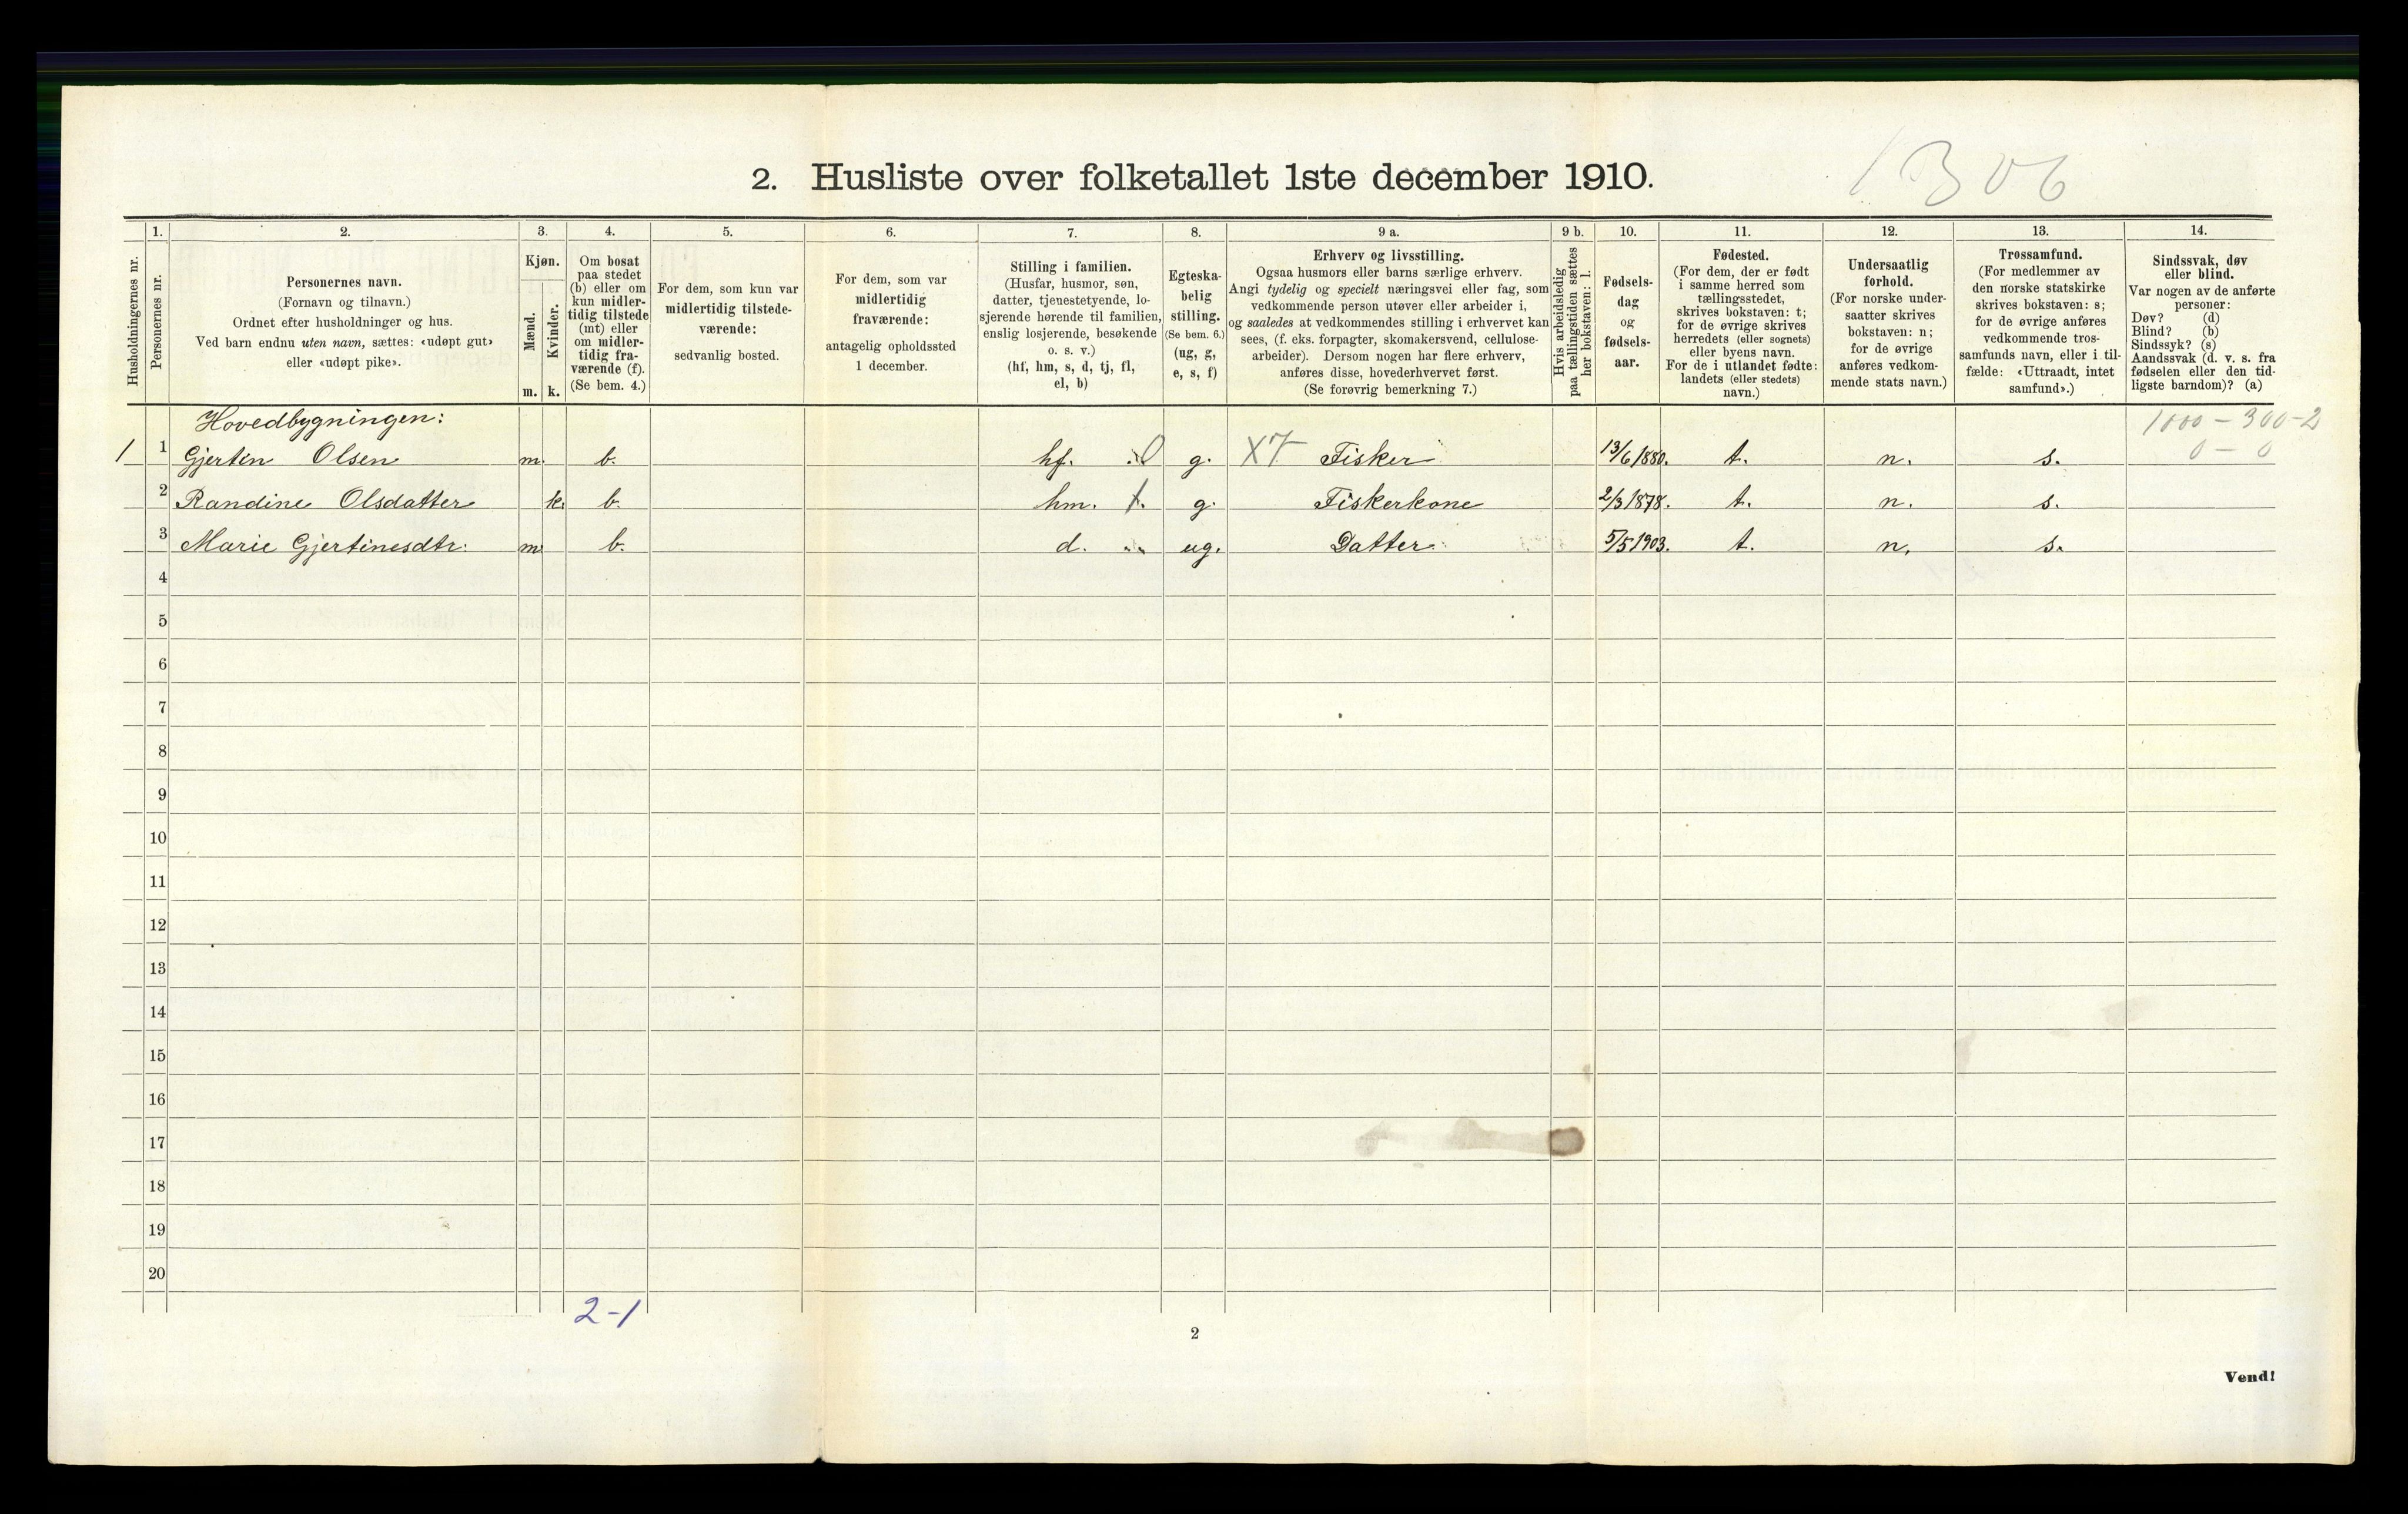 2. Husliste over folketallet 1ste december 1910.
1306
Husholdningernes nr.
1.
Personernes nr.
2.
Personernes navn.
(Fornavn og tilnavn.)
Ordnet efter husholdninger og hus.
Ved barn endnu uten navn, sættes: «udøpt gut»
eller «udøpt pike».
3.
Kjøn.
Mænd.
Kvinder.
m. k.
4.
Om bosat
paa stedet
(b) eller om
kun midler-
tidig tilstede
(mt) eller
om midler-
tidig fra-
værende (f).
(Se bem. 4.)
5.
For dem, som kun var
midlertidig tilstede-
værende:
sedvanlig bosted.
6.
For dem, som var
midlertidig
fraværende:
antagelig opholdssted
1 december.
7.
Stilling i familien.
(Husfar, husmor, søn,
datter, tjenestetyende, lo-
sjerende hørende til familien,
enslig losjerende, besøkende
o. s. v.)
(hf, hm, s, d, tj, fl,
el, b)
8.
Egteska-
belig
stilling.
(Se bem. 6.)
(ug, g,
e, s, f)
9 a.
Erhverv og livsstilling.
Ogsaa husmors eller barns særlige erhverv.
Angi tydelig og specielt næringsvei eller fag, som
vedkommende person utøver eller arbeider i,
og saaledes at vedkommendes stilling i erhvervet kan
sees, (f. eks. forpagter, skomakersvend, cellulose-
arbeider). Dersom nogen har flere erhverv,
anføres disse, hovederhvervet først.
(Se forøvrig bemerkning 7.)
9 b.
Hvis arbeidsledig
paa tællingstiden sættes
her bokstaven: l.
10.
Fødsels-
dag
og
fødsels-
aar.
11.
Fødested.
(For dem, der er født
i samme herred som
tællingsstedet,
skrives bokstaven: t;
for de øvrige skrives
herredets (eller sognets)
eller byens navn.
For de i utlandet fødte:
landets (eller stedets)
navn.)
12.
Undersaatlig
forhold.
(For norske under-
saatter skrives
bokstaven: n;
for de øvrige
anføres vedkom-
mende stats navn.)
13.
Trossamfund.
(For medlemmer av
den norske statskirke
skrives bokstaven: s;
for de øvrige anføres
vedkommende tros-
samfunds navn, eller i til-
fælde: «Uttraadt, intet
samfund».)
14.
Sindssvak, døv
eller blind.
Var nogen av de anførte
personer:
Døv? (d)
Blind? (b)
Sindssyk? (s)
Aandssvak (d. v. s. fra
fødselen eller den tid-
ligste barndom)? (a)
Hovedbygningen: 1000 - 300-2
1 1 Gjertin Olsen m. b. hf. g. X7 Fisker 13/6 1880. t. n. s. 0 - 0
2 Randine Olsdatter k. b. hm. g. Fiskerkone 2/3 1878. t. n. s.
3 Marie Gjertinesdtr. m b. d. ug. Datter 5/5 1903. t. n. s.
4
5
6
7
8
9
10
11
12
13
14
15
16
17
18
19
20
2-1
2
Vend!